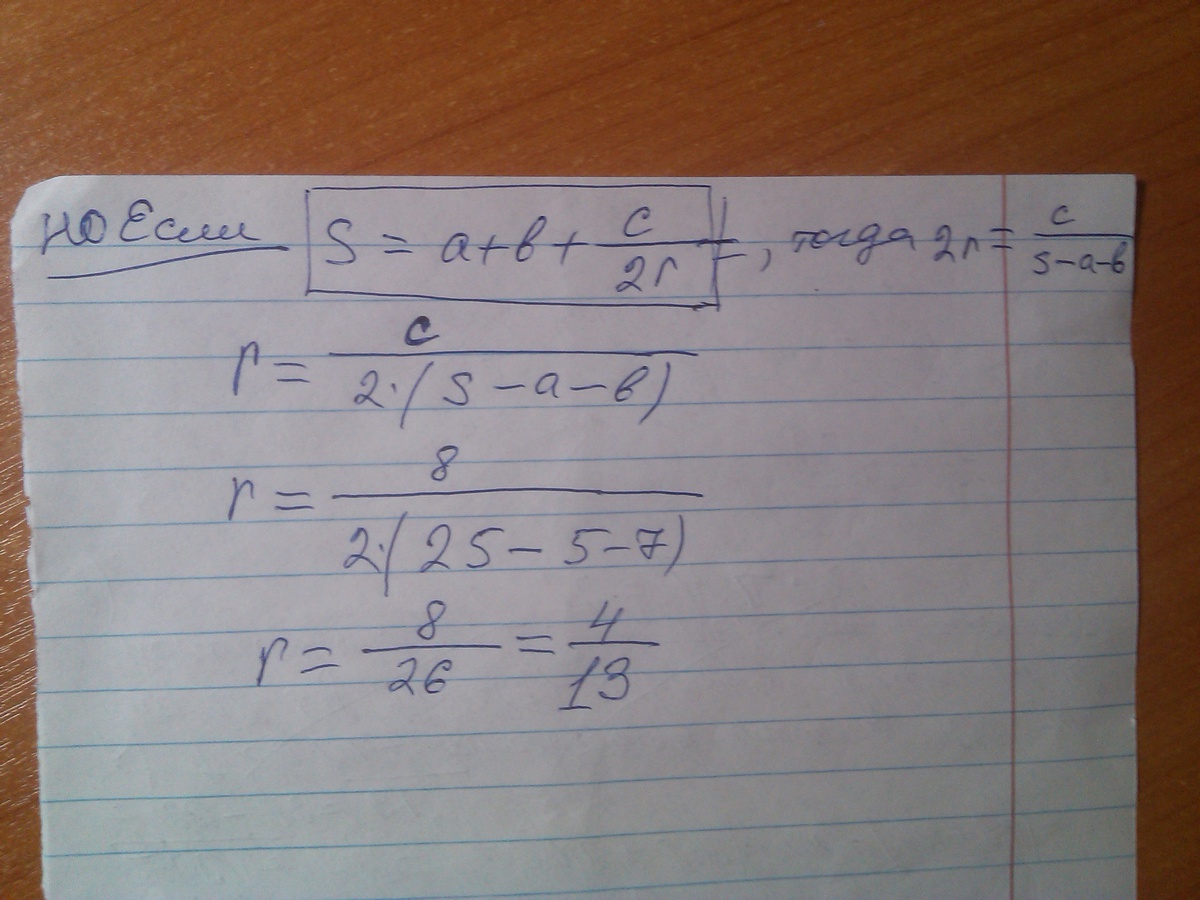 но Если S = a+b+ c/2r, тогда 2r = c/s-a-b
r = c/2·(s-a-b)
r = 8/2·(25-5-7)
r = 8/26 = 4/13